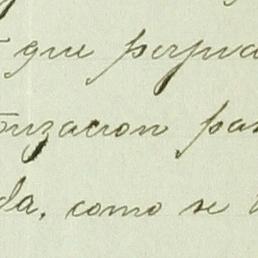 que perjud
orizacion pa
da, como se